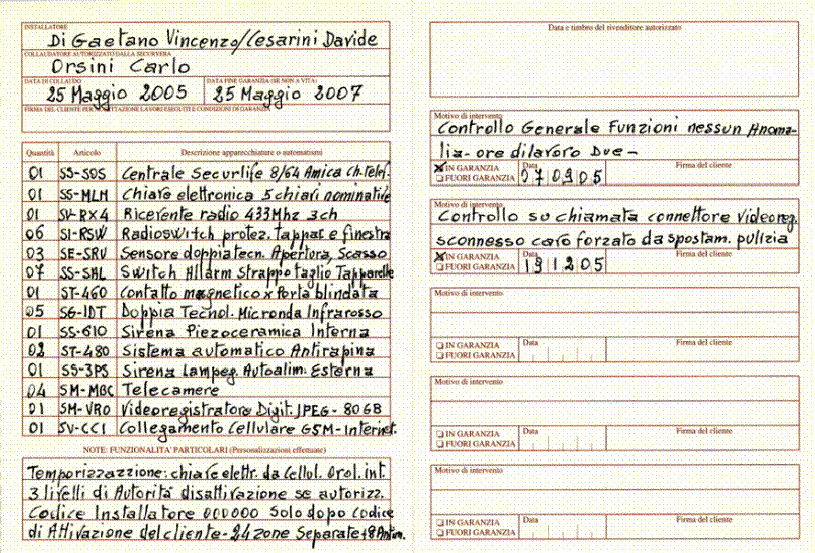 INSTALLATORE
Di Gaetano Vincenzo/Cesarini Davide
COLLAUDATORE AUTORIZZATO DALLA SECURVERA
Orsini Carlo
DATA DI COLLAUDO DATA FINE GARANZIA (SE NON A VITA)
25 Maggio 2005 25 Maggio 2007
FIRMA DEL CLIENTE PER ACCETTAZIONE LAVORI ESEGUITI E CONDIZIONI DI GARANZIA
Quantità Articolo Descrizione apparecchiature o automatismi
01 SS-SDS Centrale Securlife 8/64 Amica Ch-telef.
01 SS-MLH Chiave elettronica 5 chiavi nominative
01 SV-RX4 Ricevente radio 433Mhz 3ch
06 SI-RSW Radioswitch protez. tappar e finestra
03 SE-SRV Sensore doppia tecn. Apertura, Scasso
07 SS-SAL Switch Allarm Strappo taglio Tapparelle
01 ST-460 Contatto magnetico x Porta blindata
05 SG-IDT Doppia Tecnol. Micronda Infrarosso
01 SS-610 Sirena Piezoceramica Interna
02 ST-480 Sistema automatico Antirapina
01 SS-3PS Sirena Lampeg. Autoalim. Esterna
04 SM-MBC Telecamere
01 SM-VRO Videoregistratore Digit. JPEG - 80 GB
01 SV-CCI Collegamento Cellulare GSM-Internet.
NOTE: FUNZIONALITA' PARTICOLARI (Personalizzazioni effettuate)
Temporizzazzione: chiave elettr. da Cellul. Orol. int.
3 livelli di Autorità disattivazione se autorizz.
Codice Installatore 000000 Solo dopo codice
di Attivazione del cliente - 24 zone Separate +8 Antim.
Data e timbro del rivenditore autorizzato
Motivo di intervento
Controllo Generale Funzioni nessun Anoma-
lia - ore di lavoro Due -
IN GARANZIA Data Firma del cliente
FUORI GARANZIA 070905
Motivo di intervento
Controllo su chiamata connettore videoreg.
sconnesso cavo forzato da spostam. pulizia
IN GARANZIA Data Firma del cliente
FUORI GARANZIA 191205
Motivo di intervento
IN GARANZIA Data Firma del cliente
FUORI GARANZIA
Motivo di intervento
IN GARANZIA Data Firma del cliente
FUORI GARANZIA
Motivo di intervento
IN GARANZIA Data Firma del cliente
FUORI GARANZIA